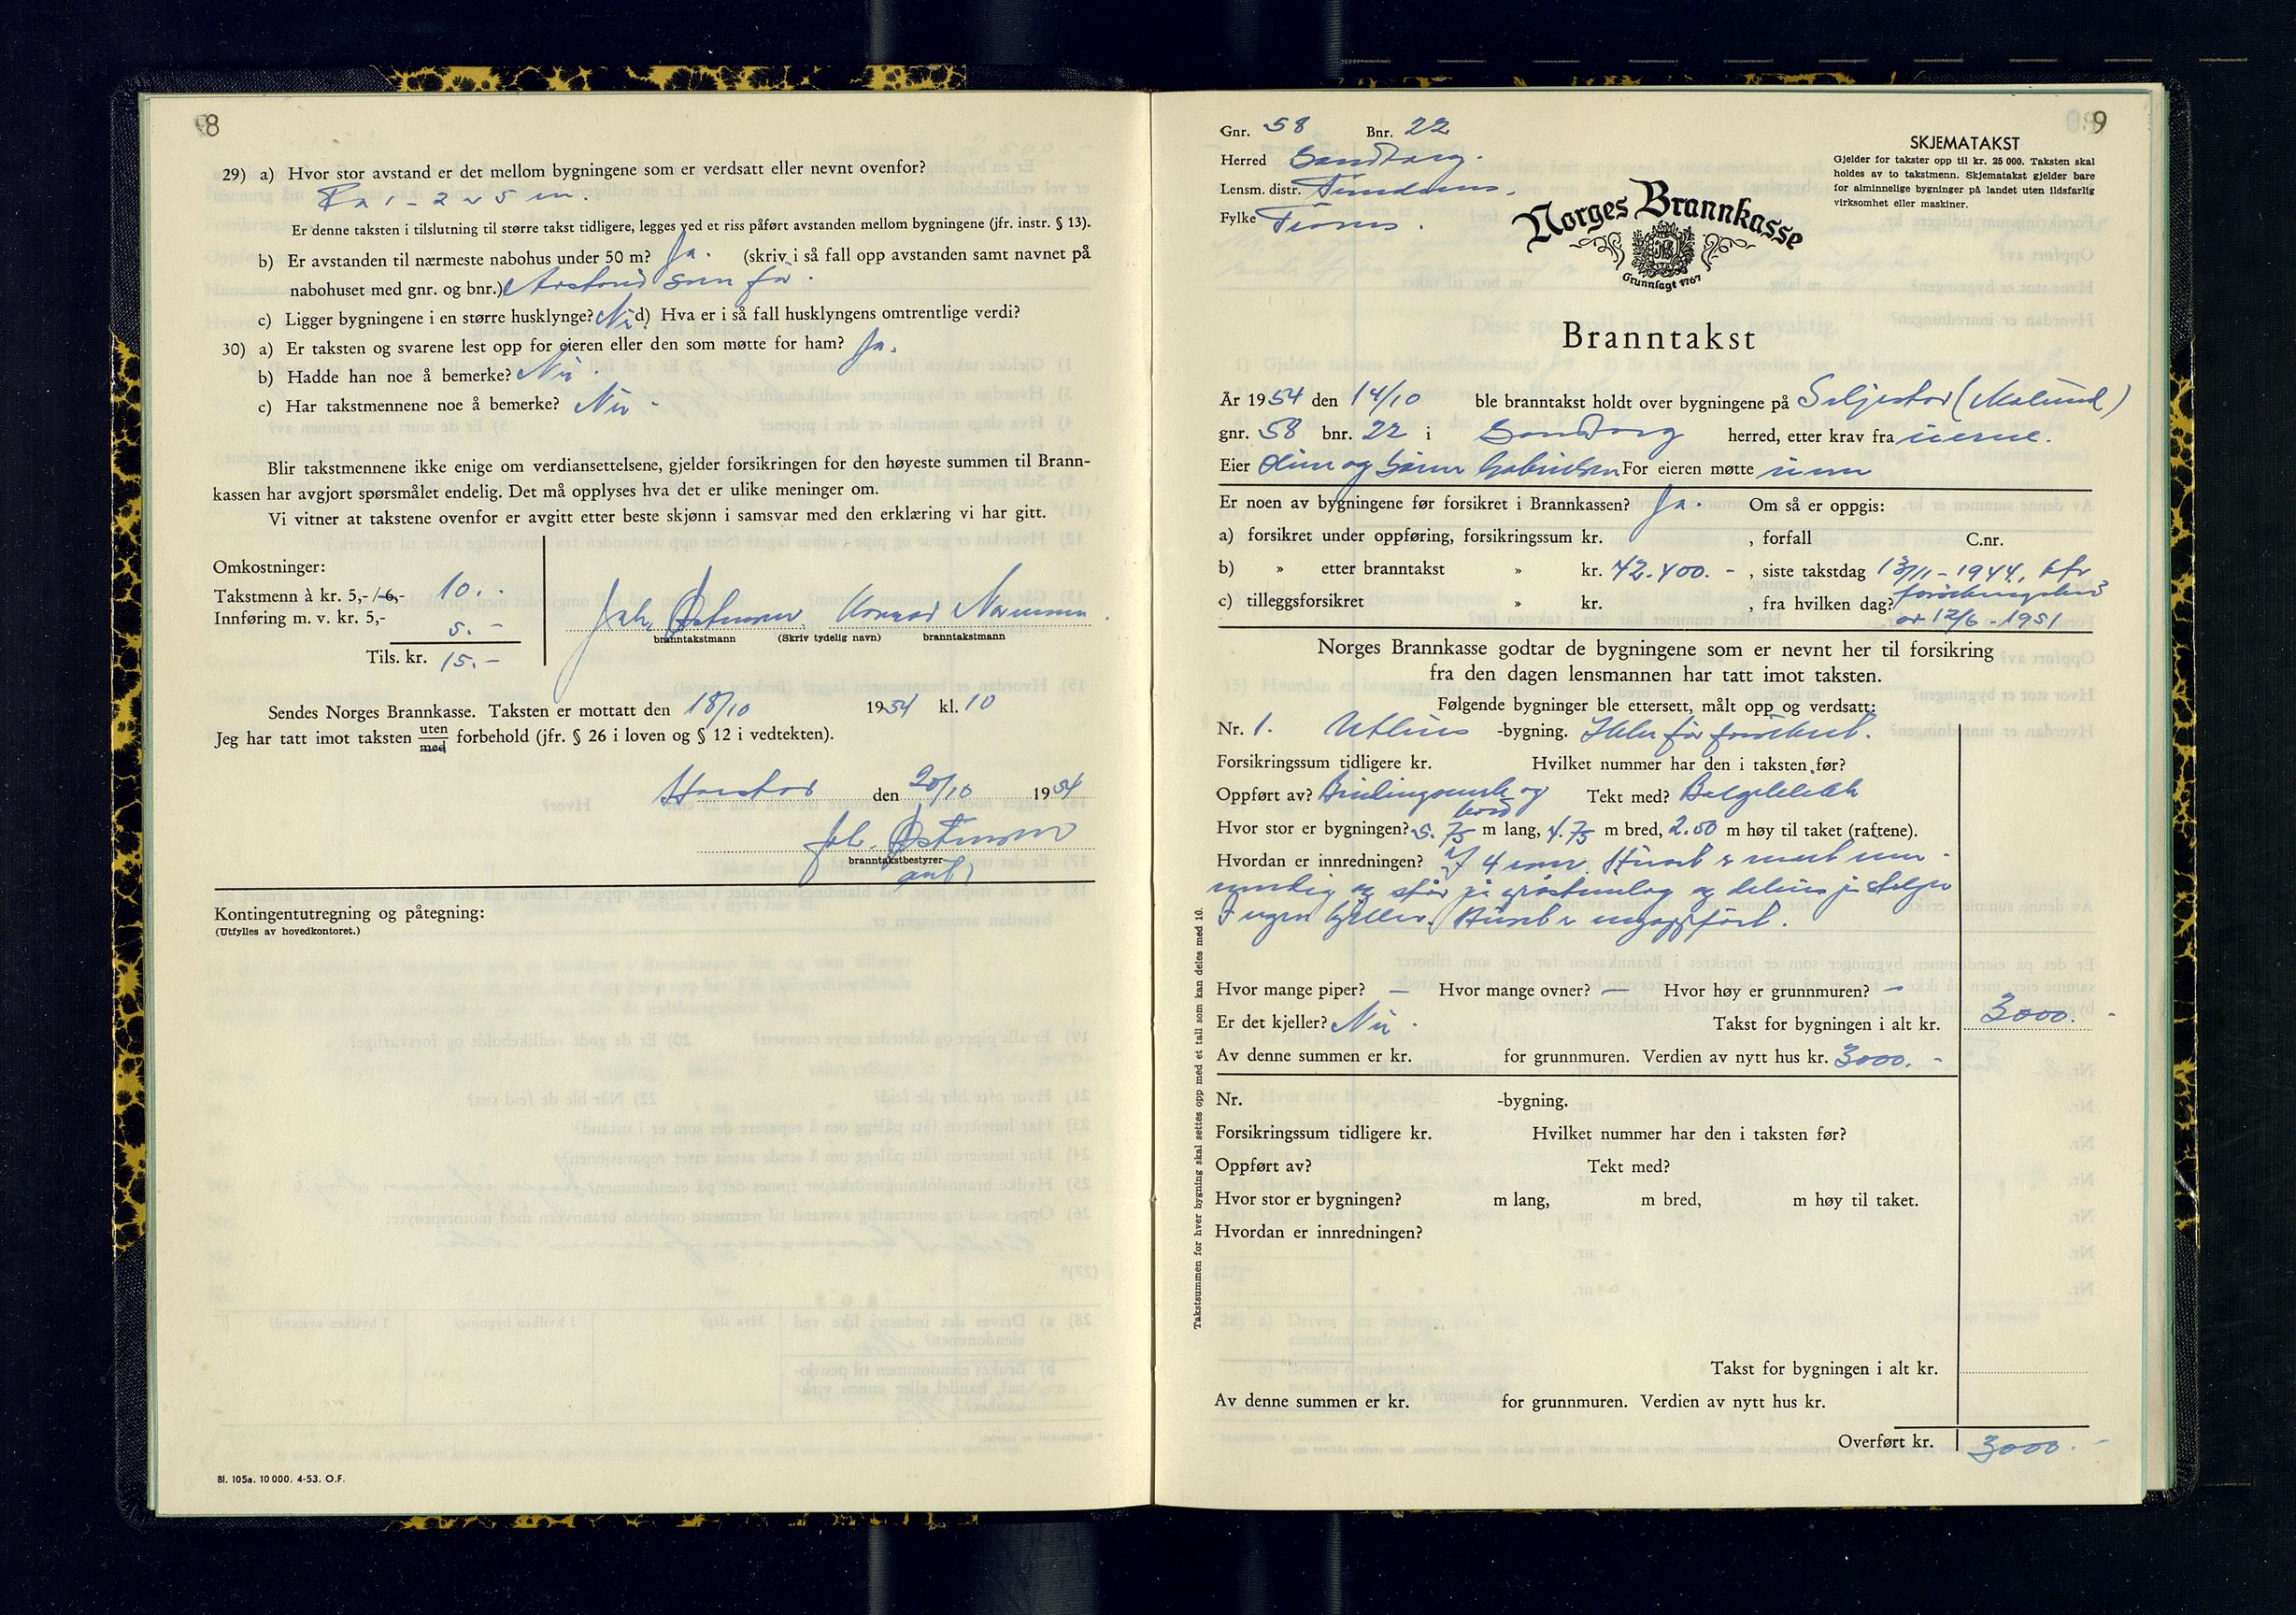 8
29) a) Hvor stor avstand er det mellom bygningene som er verdsatt eller nevnt ovenfor?
Fra 1 - 2 - 5 m.
Er denne taksten i tilslutning til større takst tidligere, legges ved et riss påført avstanden mellom bygningene (jfr. instr. § 13).
b) Er avstanden til nærmeste nabohus under 50 m? Ja. (skriv i så fall opp avstanden samt navnet på
nabohuset med gnr. og bnr.) Avstand som før.
c) Ligger bygningene i en større husklynge? Nei d) Hva er i så fall husklyngens omtrentlige verdi?
30) a) Er taksten og svarene lest opp for eieren eller den som møtte for ham? Ja.
b) Hadde han noe å bemerke? Nei
c) Har takstmennene noe å bemerke? Nei -
Blir takstmennene ikke enige om verdiansettelsene, gjelder forsikringen for den høyeste summen til Brann-
kassen har avgjort spørsmålet endelig. Det må opplyses hva det er ulike meninger om.
Vi vitner at takstene ovenfor er avgitt etter beste skjønn i samsvar med den erklæring vi har gitt.
Omkostninger:
Takstmenn à kr. 5,-/-6,- 10. -
Innføring m. v. kr. 5,- 5. -
Tils. kr. 15. -
Joh. Østensen Konrad
branntakstmann (Skriv tydelig navn) branntakstmann
Sendes Norges Brannkasse. Taksten er mottatt den 18/10 1954 kl. 10
Jeg har tatt imot taksten uten med forbehold (jfr. § 26 i loven og § 12 i vedtekten).
Harstad den 20/10 1954
Joh. Østensen
branntakstbestyrer
Kontingentutregning og påtegning:
(Utfylles av hovedkontoret.)
Bl. 105a. 10 000. 4-53. O.F.
9
Gnr. 58 Bnr. 22
Herred Sandtorg.
Lensm. distr. Trondenes.
Fylke Troms.
SKJEMATAKST
Gjelder for takster opp til kr. 25 000. Taksten skal
holdes av to takstmenn. Skjematakst gjelder bare
for alminnelige bygninger på landet uten ildsfarlig
virksomhet eller maskiner.
Norges Brannkasse
Grunnlagt 1767
Branntakst
År 1954 den 14/10 ble branntakst holdt over bygningene på Seljestad (Molund)
gnr. 58 bnr. 22 i Sandtorg herred, etter krav fra eierne.
Eier Oline og Gabrielsen For eieren møtte
Er noen av bygningene før forsikret i Brannkassen? Ja. Om så er oppgis:
a) forsikret under oppføring, forsikringssum kr. , forfall C.nr.
b) » etter branntakst » kr. 42.400. - , siste takstdag 13/11 - 1944, kfr
c) tilleggsforsikret » kr. , fra hvilken dag? forsikringsbevis
av 12/6 - 1951
Norges Brannkasse godtar de bygningene som er nevnt her til forsikring
fra den dagen lensmannen har tatt imot taksten.
Følgende bygninger ble ettersett, målt opp og verdsatt:
Nr. 1. Uthus -bygning. Ikke før forsikret.
Forsikringssum tidligere kr. Hvilket nummer har den i taksten før?
Oppført av? Bindingsverk og bord Tekt med? Bølgeblikk
Hvor stor er bygningen? 5.75 m lang, 4.75 m bred, 2.50 m høy til taket (raftene).
Hvordan er innredningen? I 4 rom. Huset er
og står på og delvis på stolper
Ingen kjeller. Huset er nyoppført.
Hvor mange piper? — Hvor mange ovner? — Hvor høy er grunnmuren? —
Er det kjeller? Nei. Takst for bygningen i alt kr. 3000. -
Av denne summen er kr. for grunnmuren. Verdien av nytt hus kr. 3000. -
Nr. -bygning.
Forsikringssum tidligere kr. Hvilket nummer har den i taksten før?
Oppført av? Tekt med?
Hvor stor er bygningen? m lang, m bred, m høy til taket.
Hvordan er innredningen?
Takst for bygningen i alt kr.
Av denne summen er kr. for grunnmuren. Verdien av nytt hus kr.
Overført kr. 3000. -
Takstsummen for hver bygning skal settes opp med et tall som kan deles med 10.